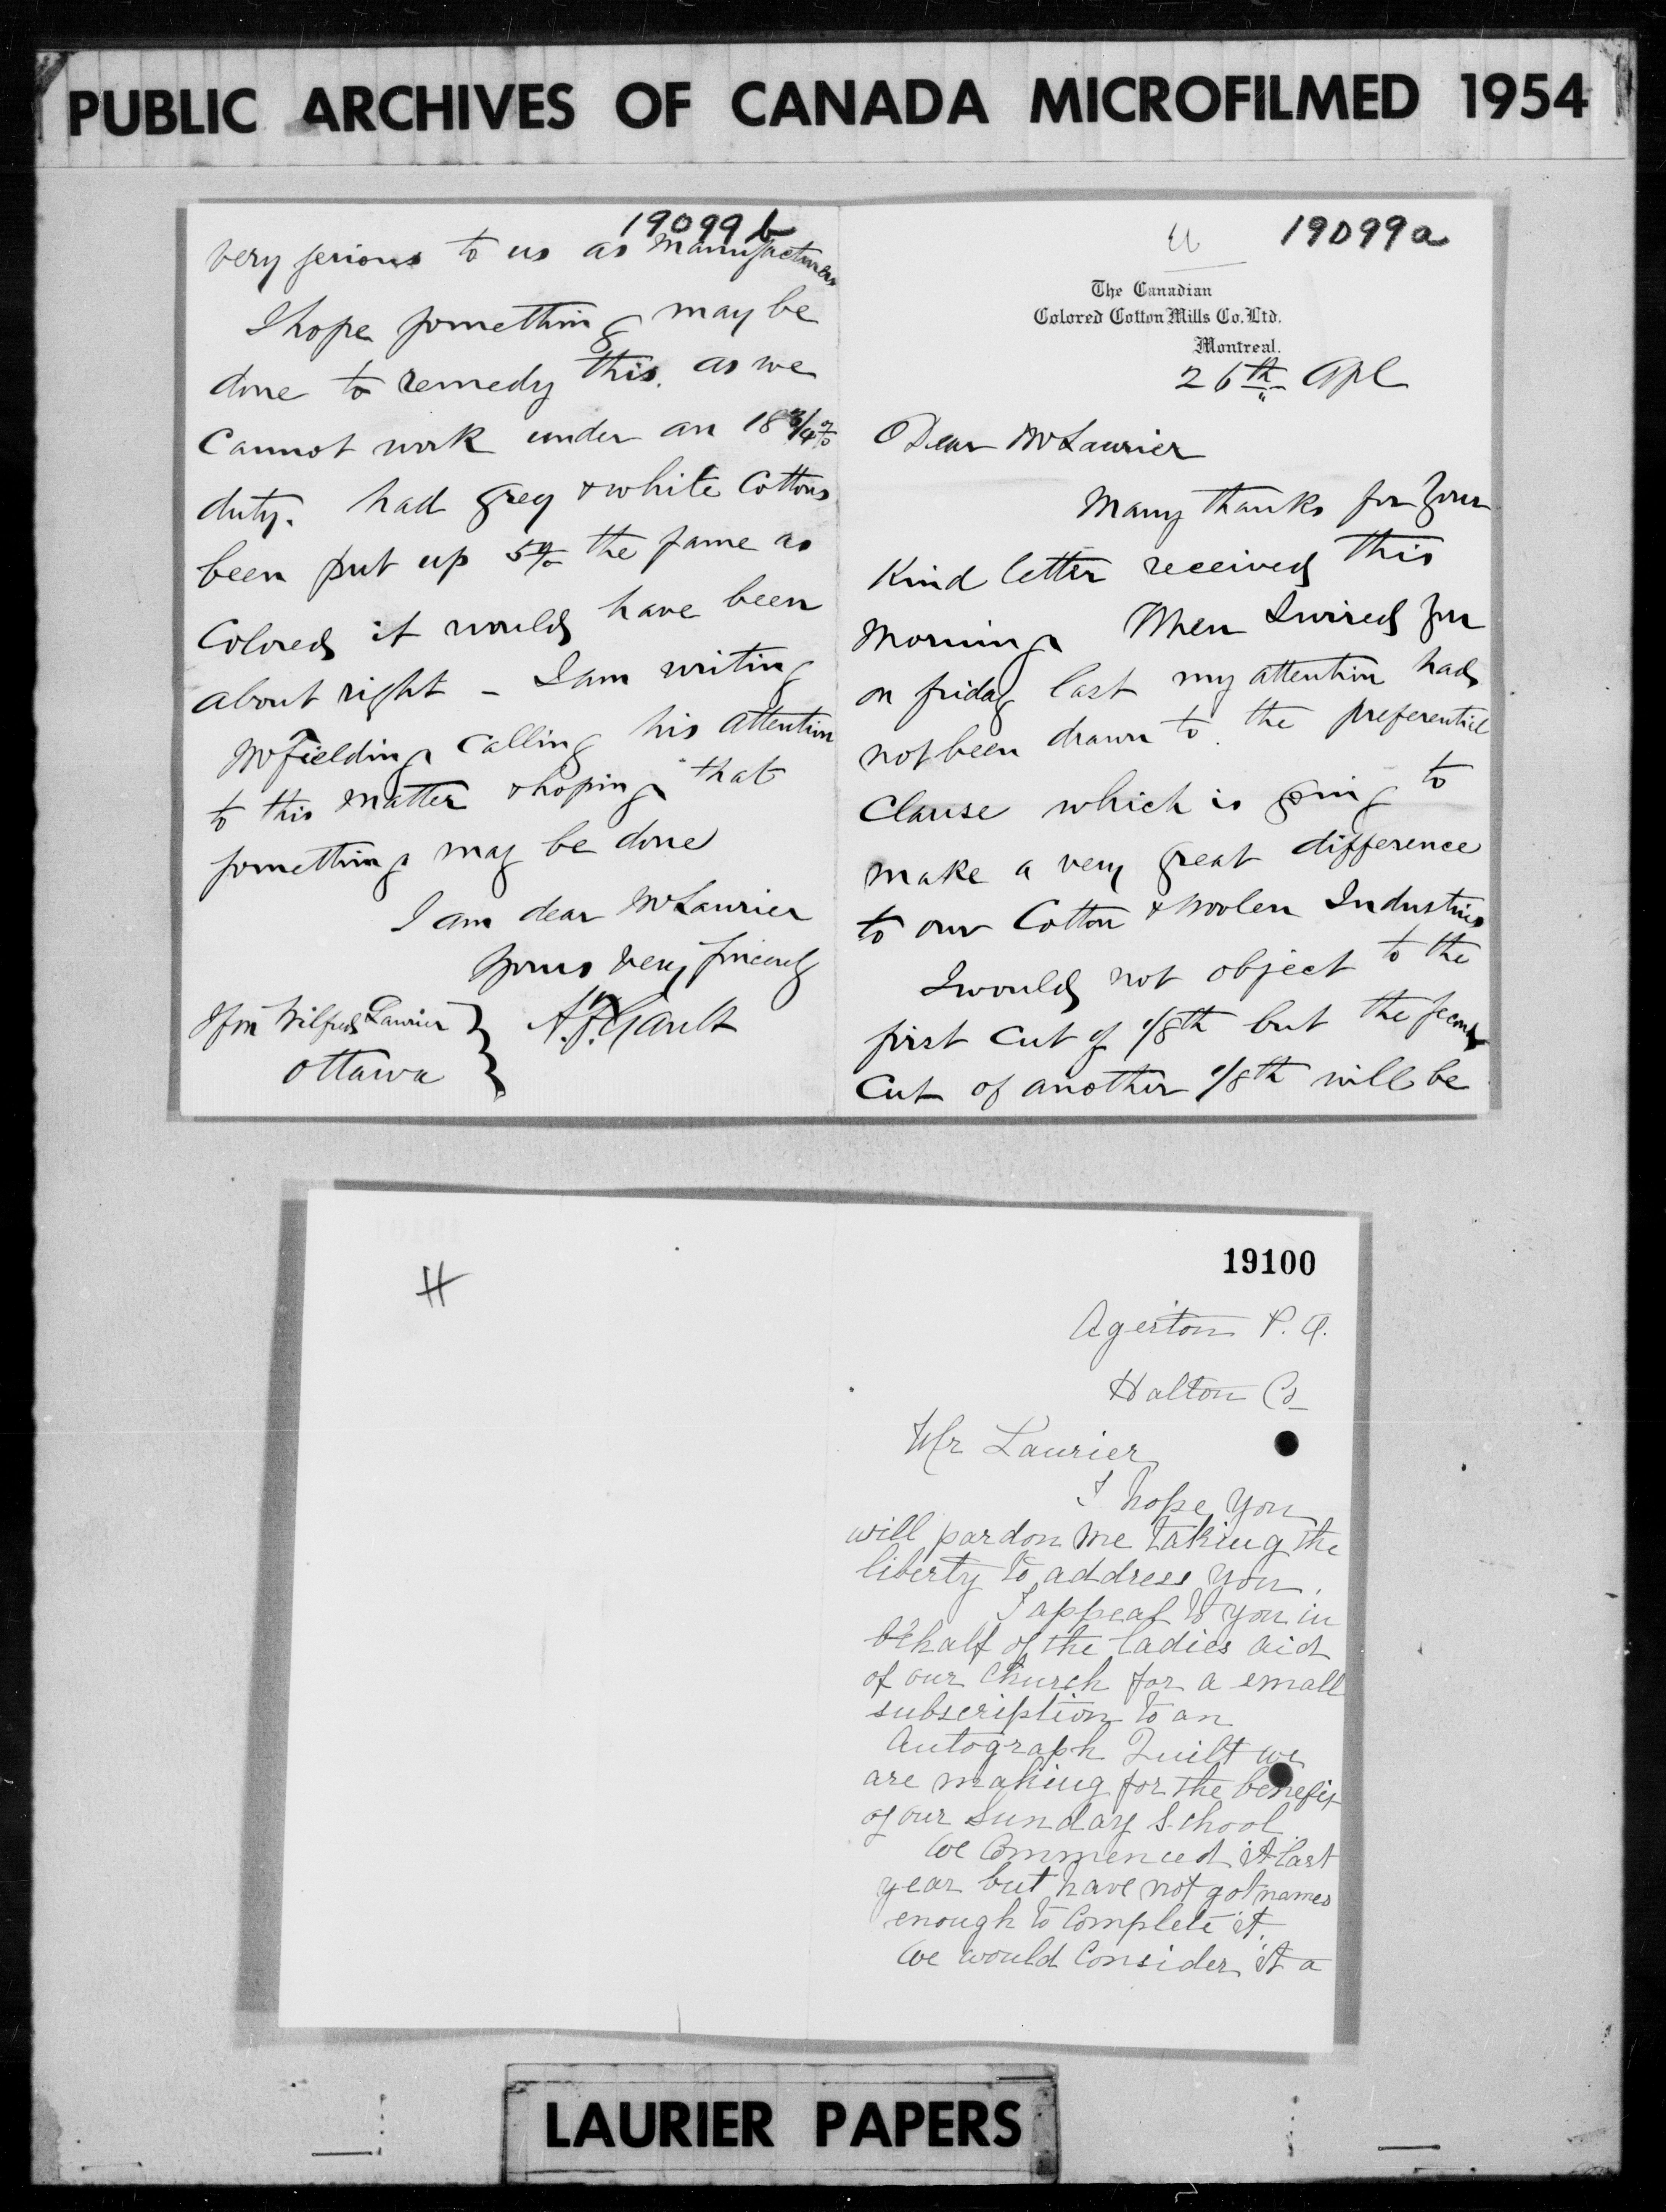 PUBLIC ARCHIVES OF CANADA MICROFILMED 1954
19099a
The Canadian
Colored Cotton Mills Co. Ltd.
Montreal.
26th Apl
Dear Mr Laurier
Many thanks for your
Kind letter received this
morning. When I wired you
on friday last my attention had
not been drawn to the preferential
Clause which is going to
make a very great difference
to our Cotton & woolen Industries
I would not object to the
first cut of 1/8th but the second
Cut of another 1/8th will be
19099b
very serious to us as manufacturers
I hope something may be
done to remedy this. as we
Cannot work under an 18 3/4 %
duty. had grey & white Cottons
been put up 5% the same as
Colored it would have been
about right - I am writing
Mr Fielding calling his attention
to this matter & hoping that
something may be done
I am dear Mr Laurier
yours very sincerely
A.F. Gault
Hon Wilfred Laurier
Ottawa
H
19100
Agerton P.O.
Halton Co
Mr Laurier
I hope you
will pardon me taking the
liberty to address you.
I appeal to you in
behalf of the ladies aid
of our Church for a small
subscription to an
Autograph Quilt we
are making for the benefit
of our Sunday School
We Commenced it last
year but have not got names
enough to Complete it.
We would Consider it a
LAURIER PAPERS